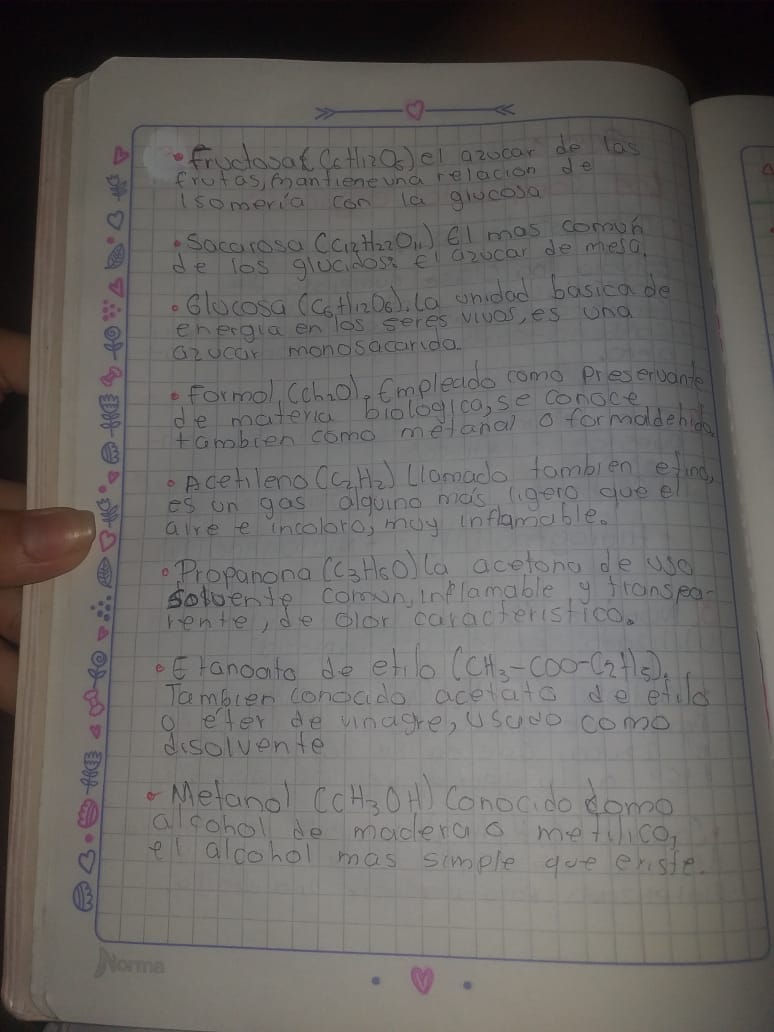 • Fructosa (C6H12O6) el azucar de las
frutas, mantiene una relacion de
isomería con la glucosa
• Sacarosa (C12H22O11) El mas común
de los glucidos: el azucar de mesa.
• Glucosa (C6H12O6). La unidad basica de
energia en los seres vivos, es una
azucar monosacarida.
• Formol (Ch2O). Empleado como preservante
de materia biologica, se conoce
tambien como metanal o formaldehido.
• Acetileno (C2H2) Llamado tambien etino,
es un gas alquino más ligero que el
aire e incoloro, muy inflamable.
• Propanona (C3H6O) la acetona de uso
solvente comun, inflamable y transpa-
rente, de olor caracteristico.
• Etanoato de etilo (CH3-COO-C2H5).
Tambien conocido acetato de etilo
o éter de vinagre, usado como
disolvente
• Metanol (CH3OH) Conocido como
alcohol de madera o metilico,
el alcohol mas simple que existe.
Norma